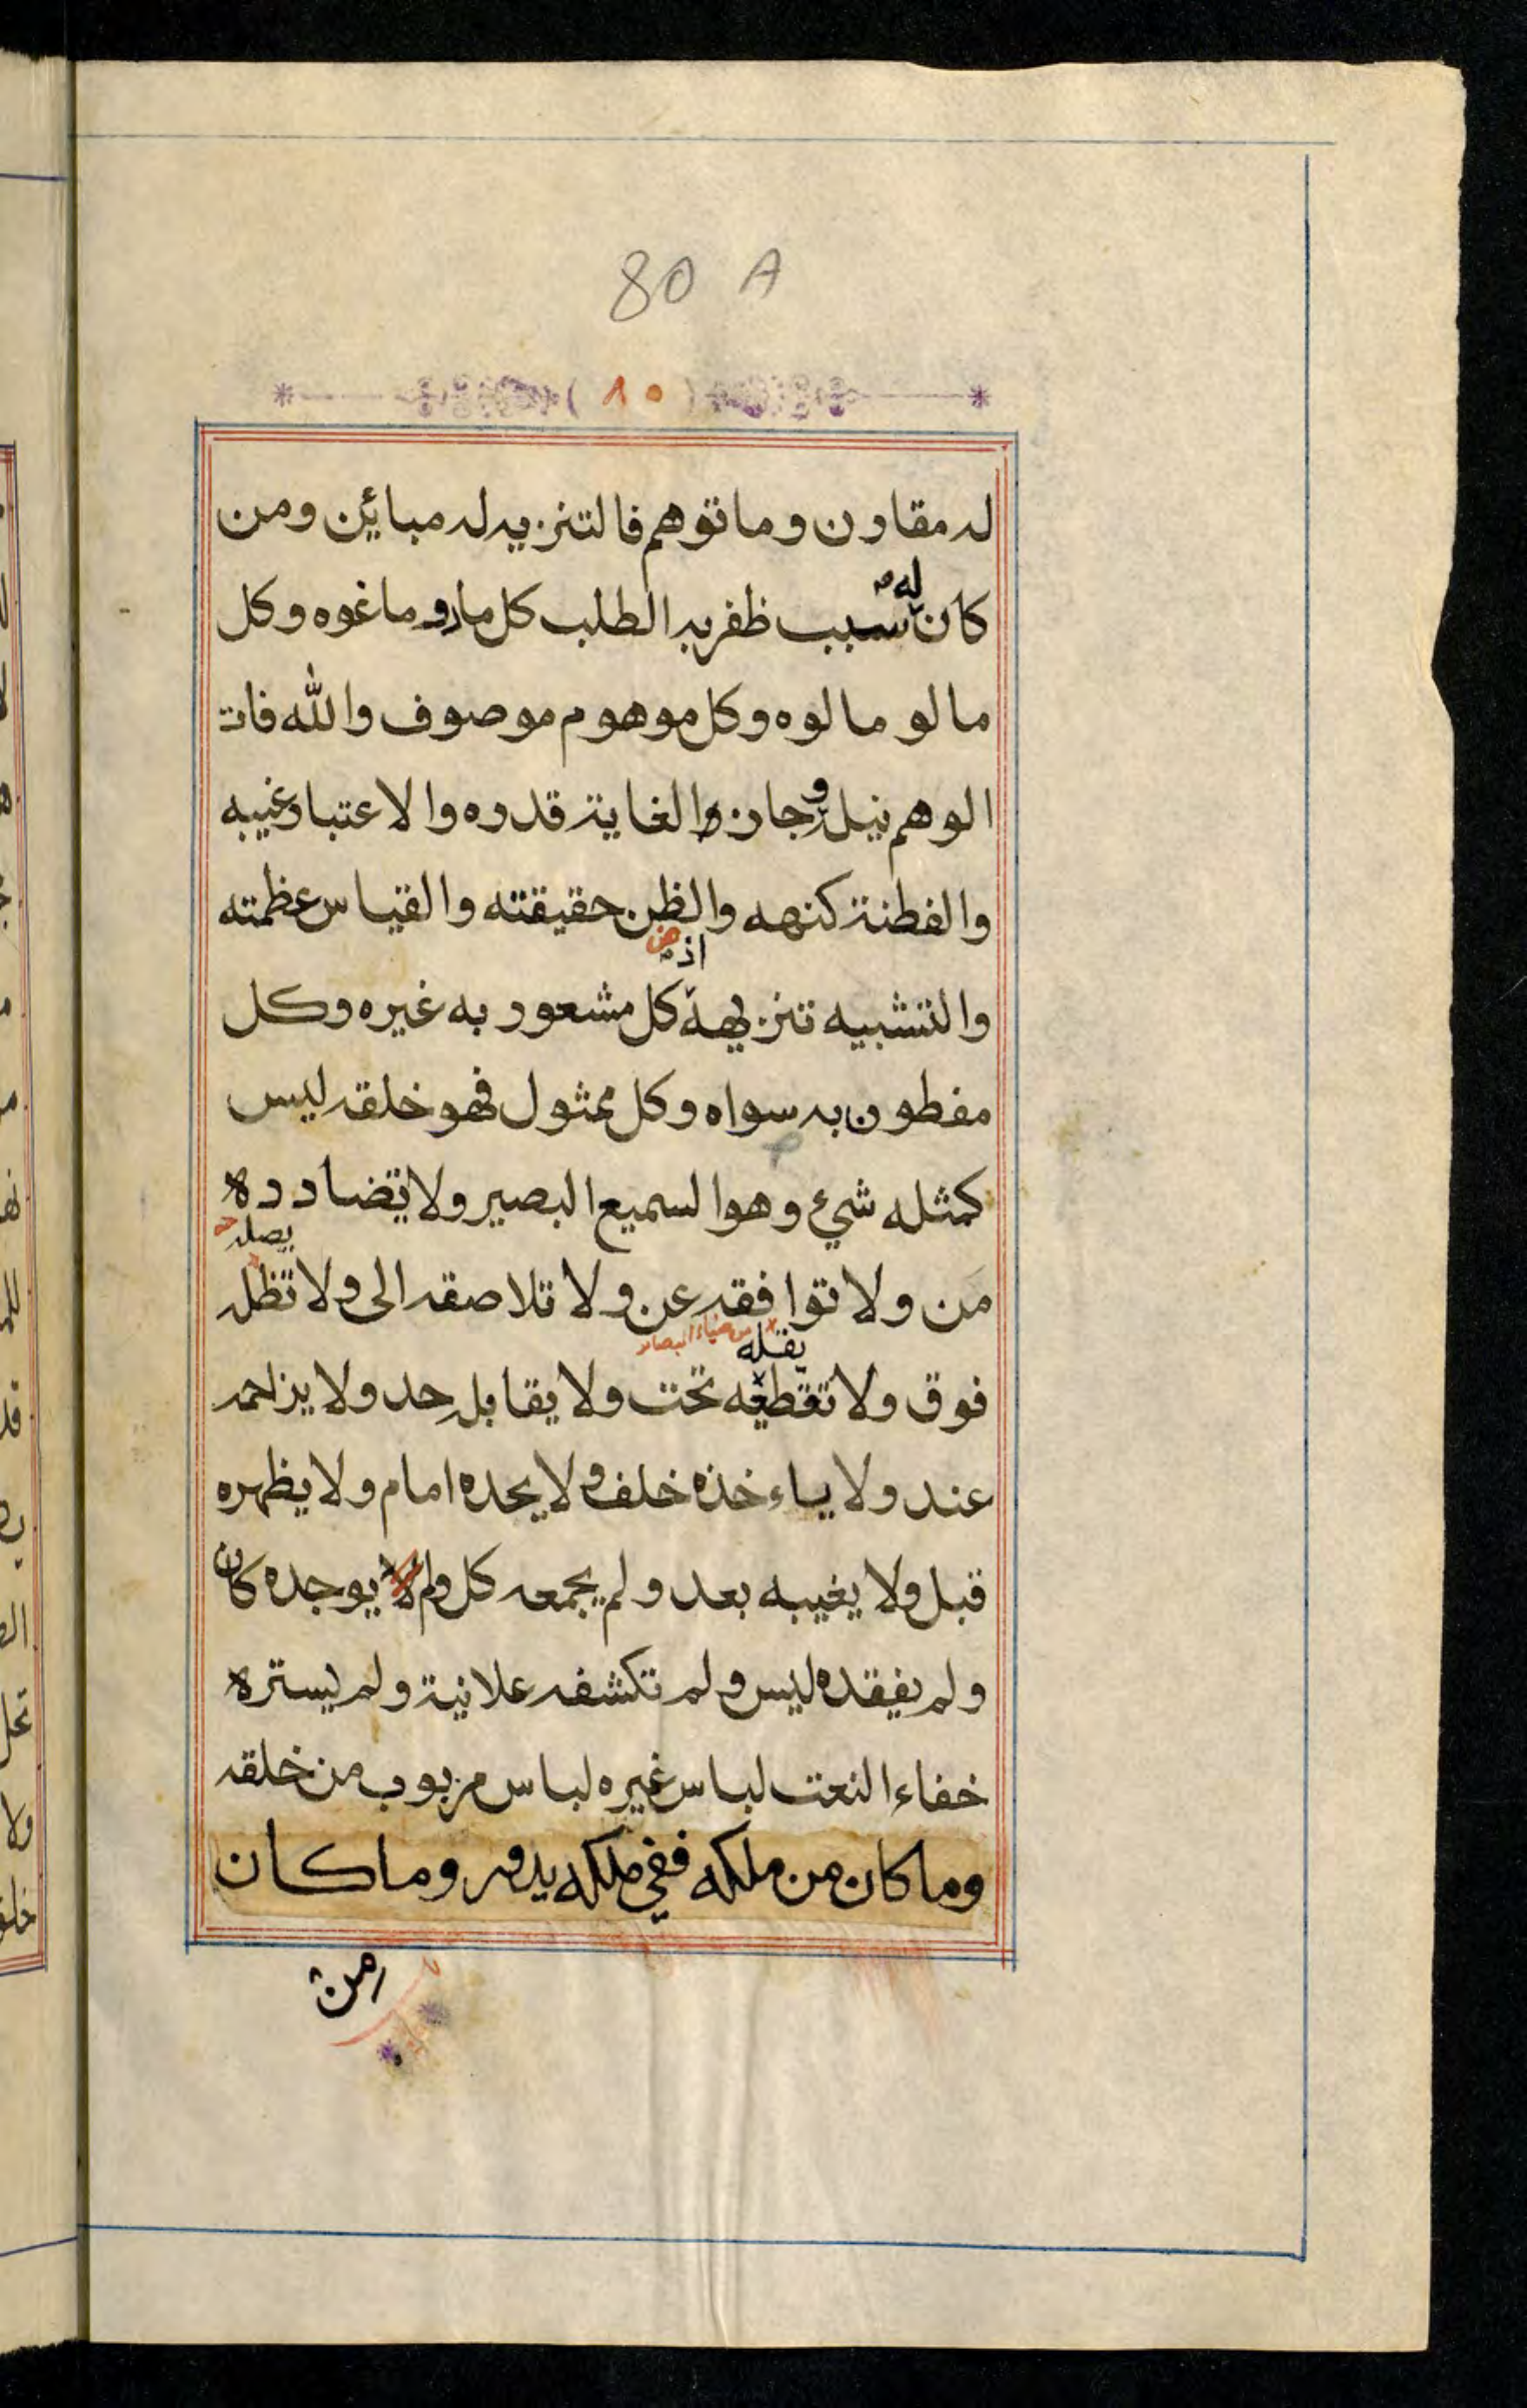 80 A
( ٨٠ )
له مقارن وما توهم فالتنزيه له مباين ومن
كان له سبب ظفر به الطلب كل ما رو ما غوه وكل
مالو مالوه وكل موهوم موصوف والله فات
الوهم نيله وجاز والغاية قدره والاعتبار غيبه
والفطنة كنهه والظن حقيقته والقياس عظمته
اذ
والتشبيه تنزيهه كل مشعور به غيره وكل
مفطون به سواه وكل ممثول فهو خلقه ليس
كمثله شيء وهو السميع البصير ولا تضادده
يصله
من ولا توافقه عن ولا تلاصقه الى ولا تظله
يقله من ضياء البصائر
فوق ولا تقطعه تحت ولا يقابله حد ولا يزاحمه
عند ولا ياءخذه خلف ولا يحده امام ولا يظهره
قبل ولا يغيبه بعد ولم يجمعه كل ولم يوجده كان
ولم يفقده ليس ولم تكشفه علانية ولم يستره
خفاء النعت لباس غيره لباس مربوب من خلقه
وما كان من ملكه ففي ملكه يدور وما كان
من